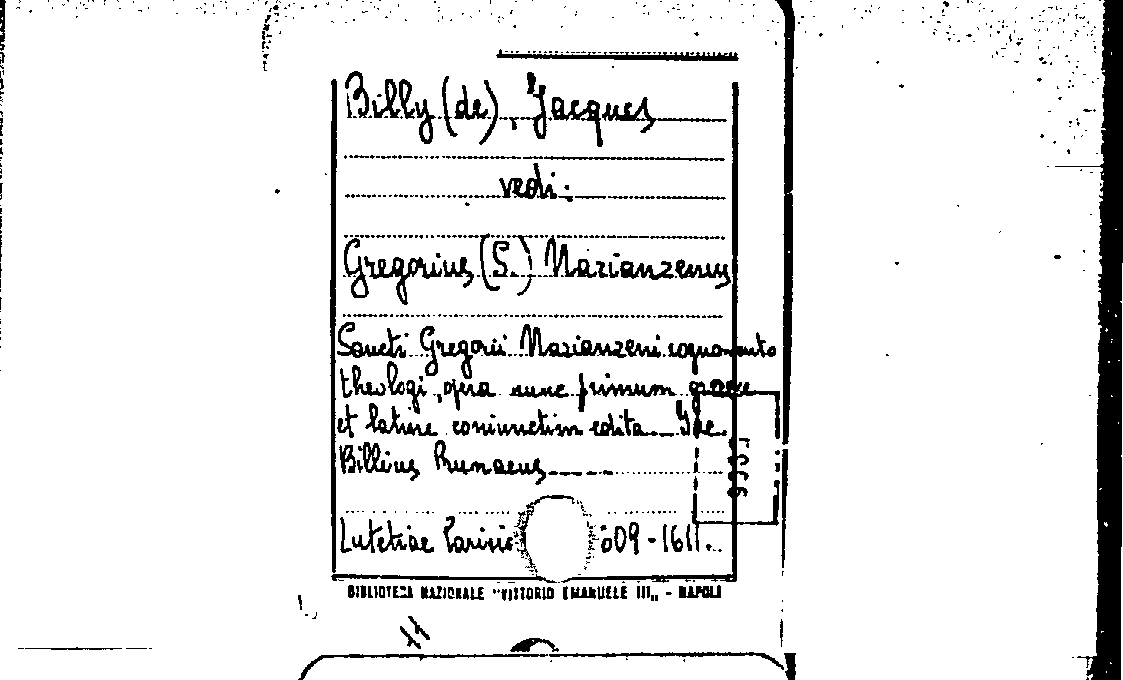 Billy (de), Jacques
vedi:
Gregorius (S.) Nazianzenus
Sancti Gregorii Nazianzeni cognomento
theologi, opera nunc primum graece
et latine coniunctim edita... Iac.
Billius Prunaeus
Lutetiae Parisio 609-1611.
BIBLIOTECA NAZIONALE "VITTORIO EMANUELE III" - NAPOLI